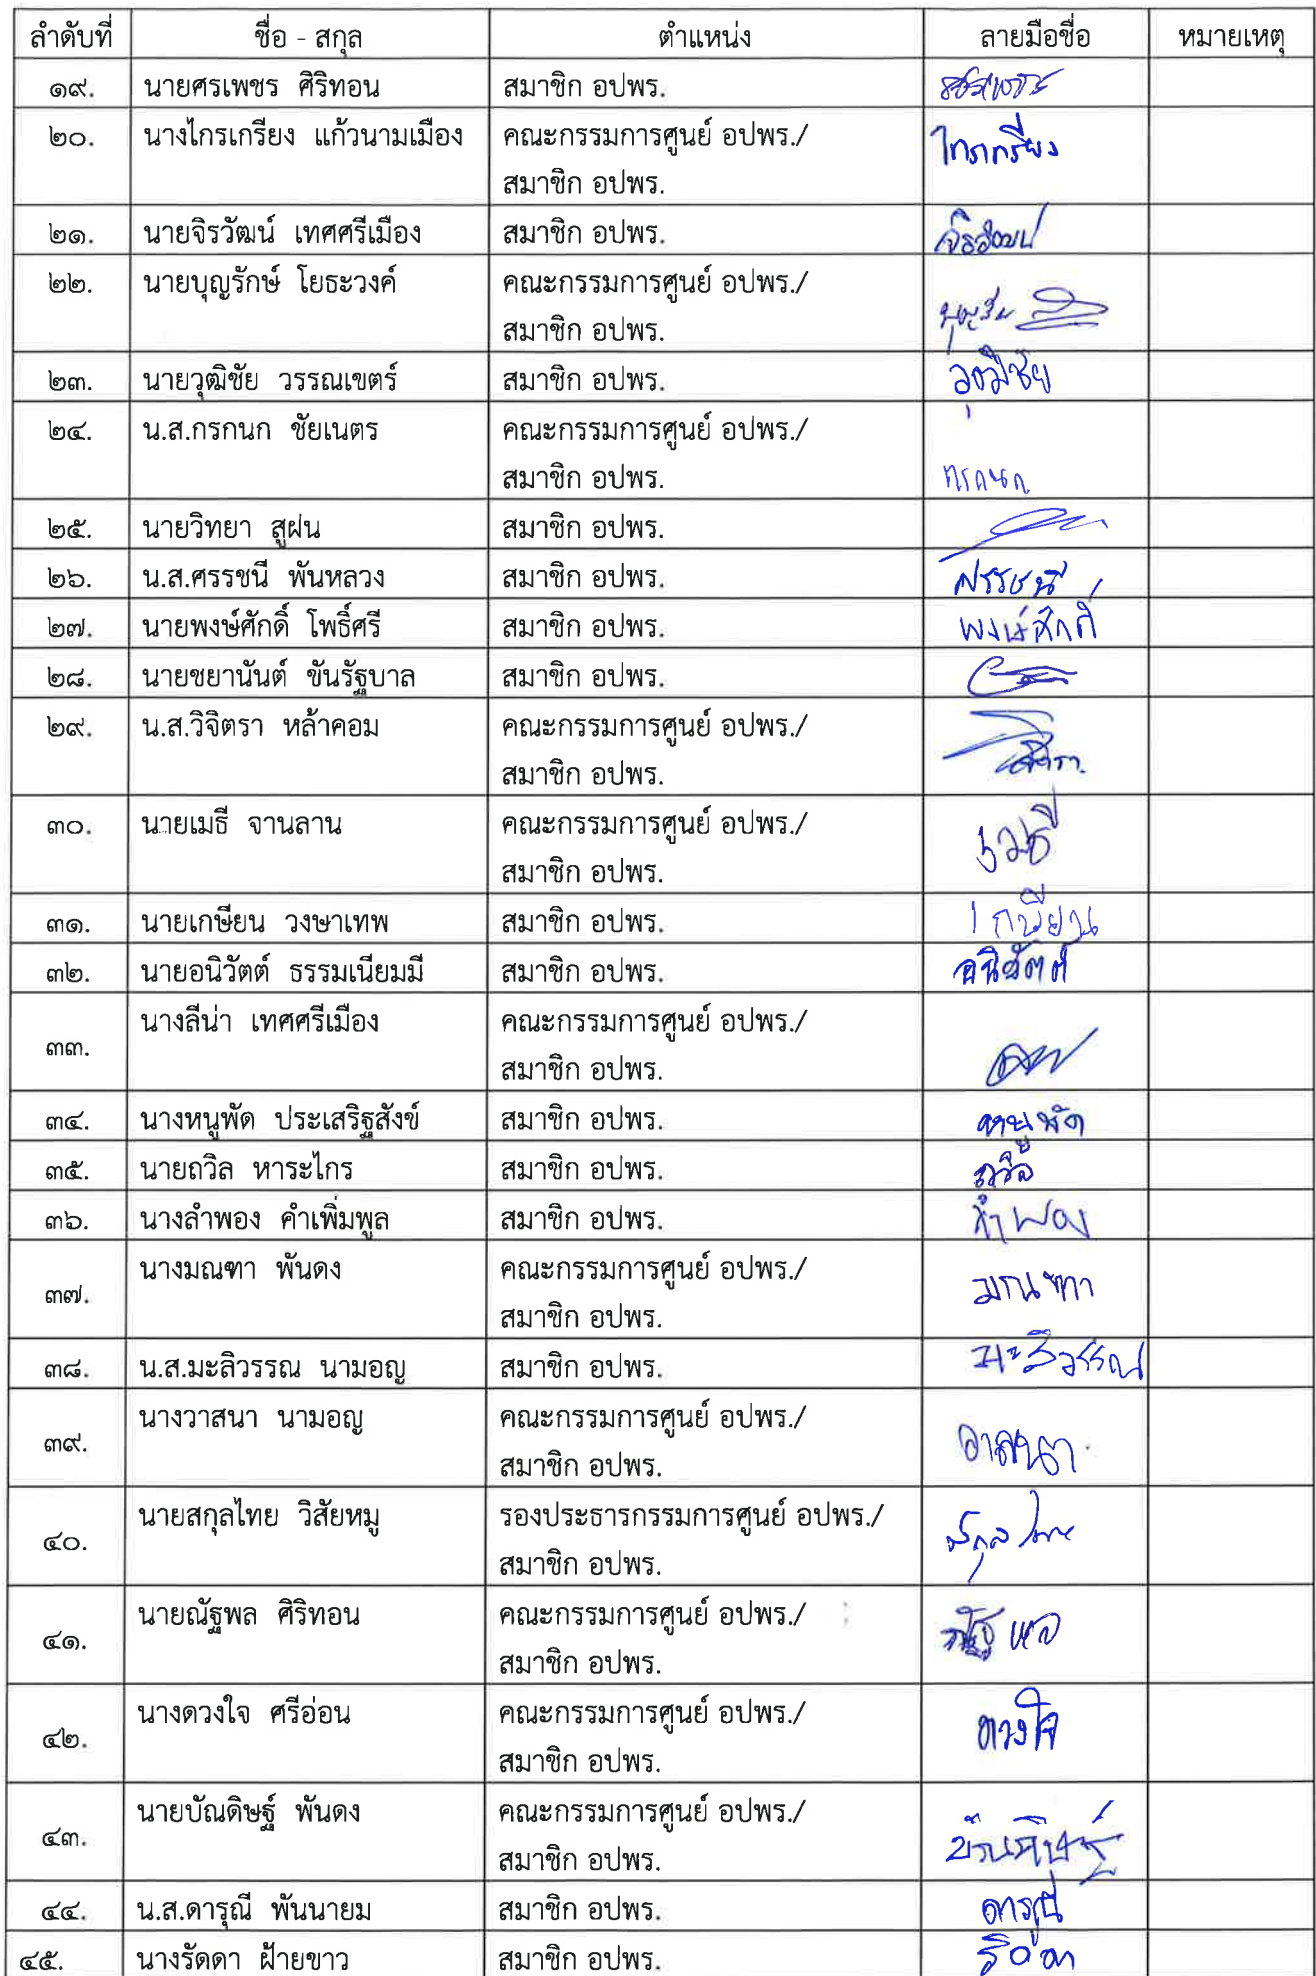 ลำดับที่ ชื่อ - สกุล ตำแหน่ง ลายมือชื่อ หมายเหตุ
๑๙. นายศรเพชร ศิริทอน สมาชิก อปพร. ศรเพชร
๒๐. นางไกรเกรียง แก้วนามเมือง คณะกรรมการศูนย์ อปพร./ ไกรเกรียง
สมาชิก อปพร.
๒๑. นายจิรวัฒน์ เทศศรีเมือง สมาชิก อปพร. จิรวัฒน์
๒๒. นายบุญรักษ์ โยธะวงค์ คณะกรรมการศูนย์ อปพร./
สมาชิก อปพร.
๒๓. นายวุฒิชัย วรรณเขตร์ สมาชิก อปพร. วุฒิชัย
๒๔. น.ส.กรกนก ชัยเนตร คณะกรรมการศูนย์ อปพร./
สมาชิก อปพร. กรกนก
๒๕. นายวิทยา สูฝน สมาชิก อปพร.
๒๖. น.ส.ศรรชนี พันหลวง สมาชิก อปพร. ศรรชนี
๒๗. นายพงษ์ศักดิ์ โพธิ์ศรี สมาชิก อปพร. พงษ์ศักดิ์
๒๘. นายชยานันต์ ขันรัฐบาล สมาชิก อปพร.
๒๙. น.ส.วิจิตรา หล้าคอม คณะกรรมการศูนย์ อปพร./
สมาชิก อปพร.
๓๐. นายเมธี จานลาน คณะกรรมการศูนย์ อปพร./ เมธี
สมาชิก อปพร.
๓๑. นายเกษียน วงษาเทพ สมาชิก อปพร. เกษียน
๓๒. นายอนิวัตต์ ธรรมเนียมมี สมาชิก อปพร. อนิวัตต์
๓๓. นางลีน่า เทศศรีเมือง คณะกรรมการศูนย์ อปพร./
สมาชิก อปพร.
๓๔. นางหนูพัด ประเสริฐสังข์ สมาชิก อปพร. หนูพัด
๓๕. นายถวิล หาระไกร สมาชิก อปพร. ถวิล
๓๖. นางลำพอง คำเพิ่มพูล สมาชิก อปพร. ลำพอง
๓๗. นางมณฑา พันดง คณะกรรมการศูนย์ อปพร./ มณฑา
สมาชิก อปพร.
๓๘. น.ส.มะลิวรรณ นามอญ สมาชิก อปพร. มะลิวรรณ
๓๙. นางวาสนา นามอญ คณะกรรมการศูนย์ อปพร./ วาสนา
สมาชิก อปพร.
๔๐. นายสกุลไทย วิสัยหมู รองประธารกรรมการศูนย์ อปพร./ สกุลไทย
สมาชิก อปพร.
๔๑. นายณัฐพล ศิริทอน คณะกรรมการศูนย์ อปพร./ ณัฐพล
สมาชิก อปพร.
๔๒. นางดวงใจ ศรีอ่อน คณะกรรมการศูนย์ อปพร./ ดวงใจ
สมาชิก อปพร.
๔๓. นายบัณดิษฐ์ พันดง คณะกรรมการศูนย์ อปพร./ บัณดิษฐ์
สมาชิก อปพร.
๔๔. น.ส.ดารุณี พันนายม สมาชิก อปพร. ดารุณี
๔๕. นางรัดดา ฝ้ายขาว สมาชิก อปพร. รัดดา